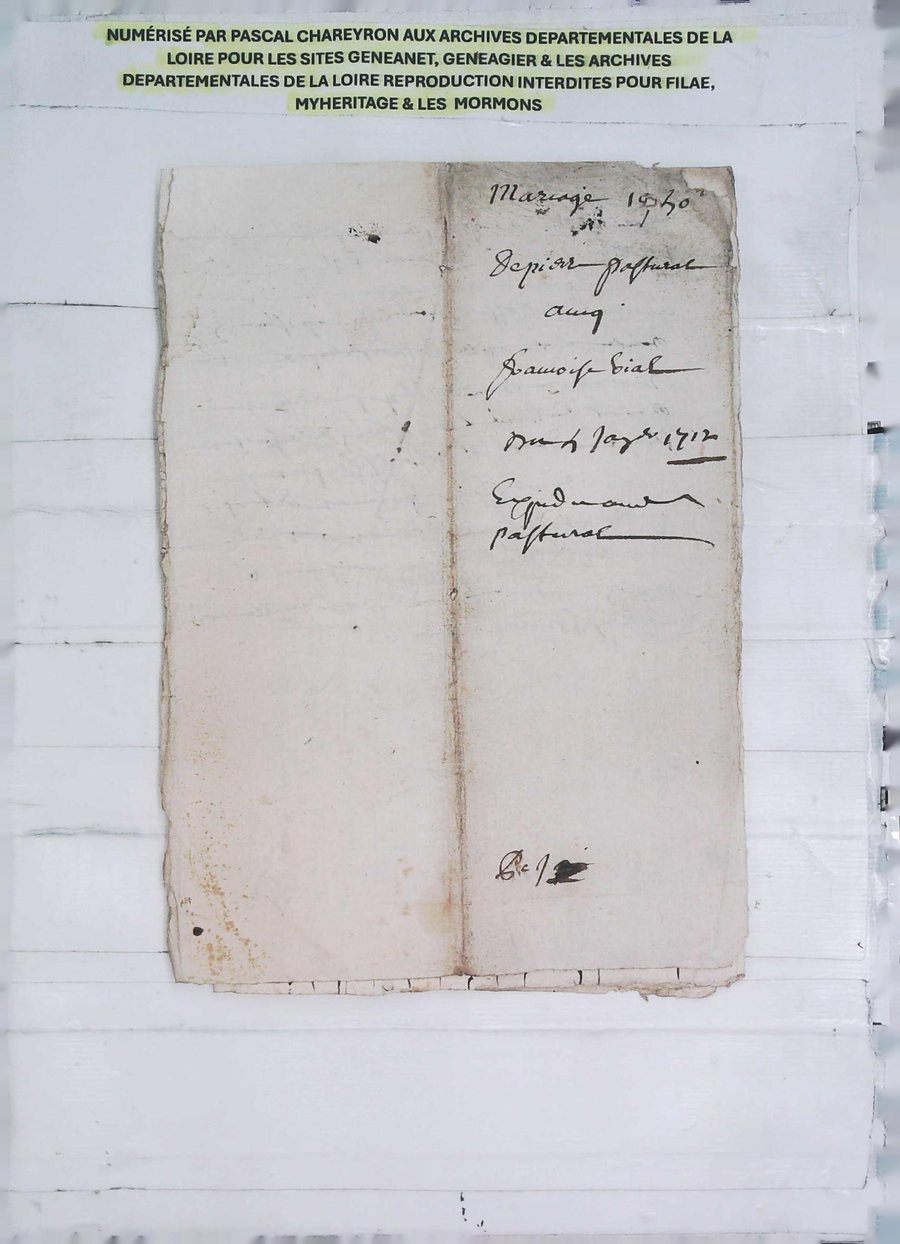 NUMÉRISÉ PAR PASCAL CHAREYRON AUX ARCHIVES DEPARTEMENTALES DE LA
LOIRE POUR LES SITES GENEANET, GENEAGIER & LES ARCHIVES
DEPARTEMENTALES DE LA LOIRE REPRODUCTION INTERDITES POUR FILAE,
MYHERITAGE & LES MORMONS
Mariage
De pierre pastural
avecq
francoise Vial
1712
pastural